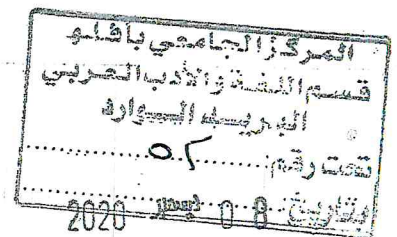 المركز الجامعي بافلو
قسم اللغة والأدب العربي
البريد الوارد
تحت رقم:
بتاريخ: 08 ديسمبر 2020